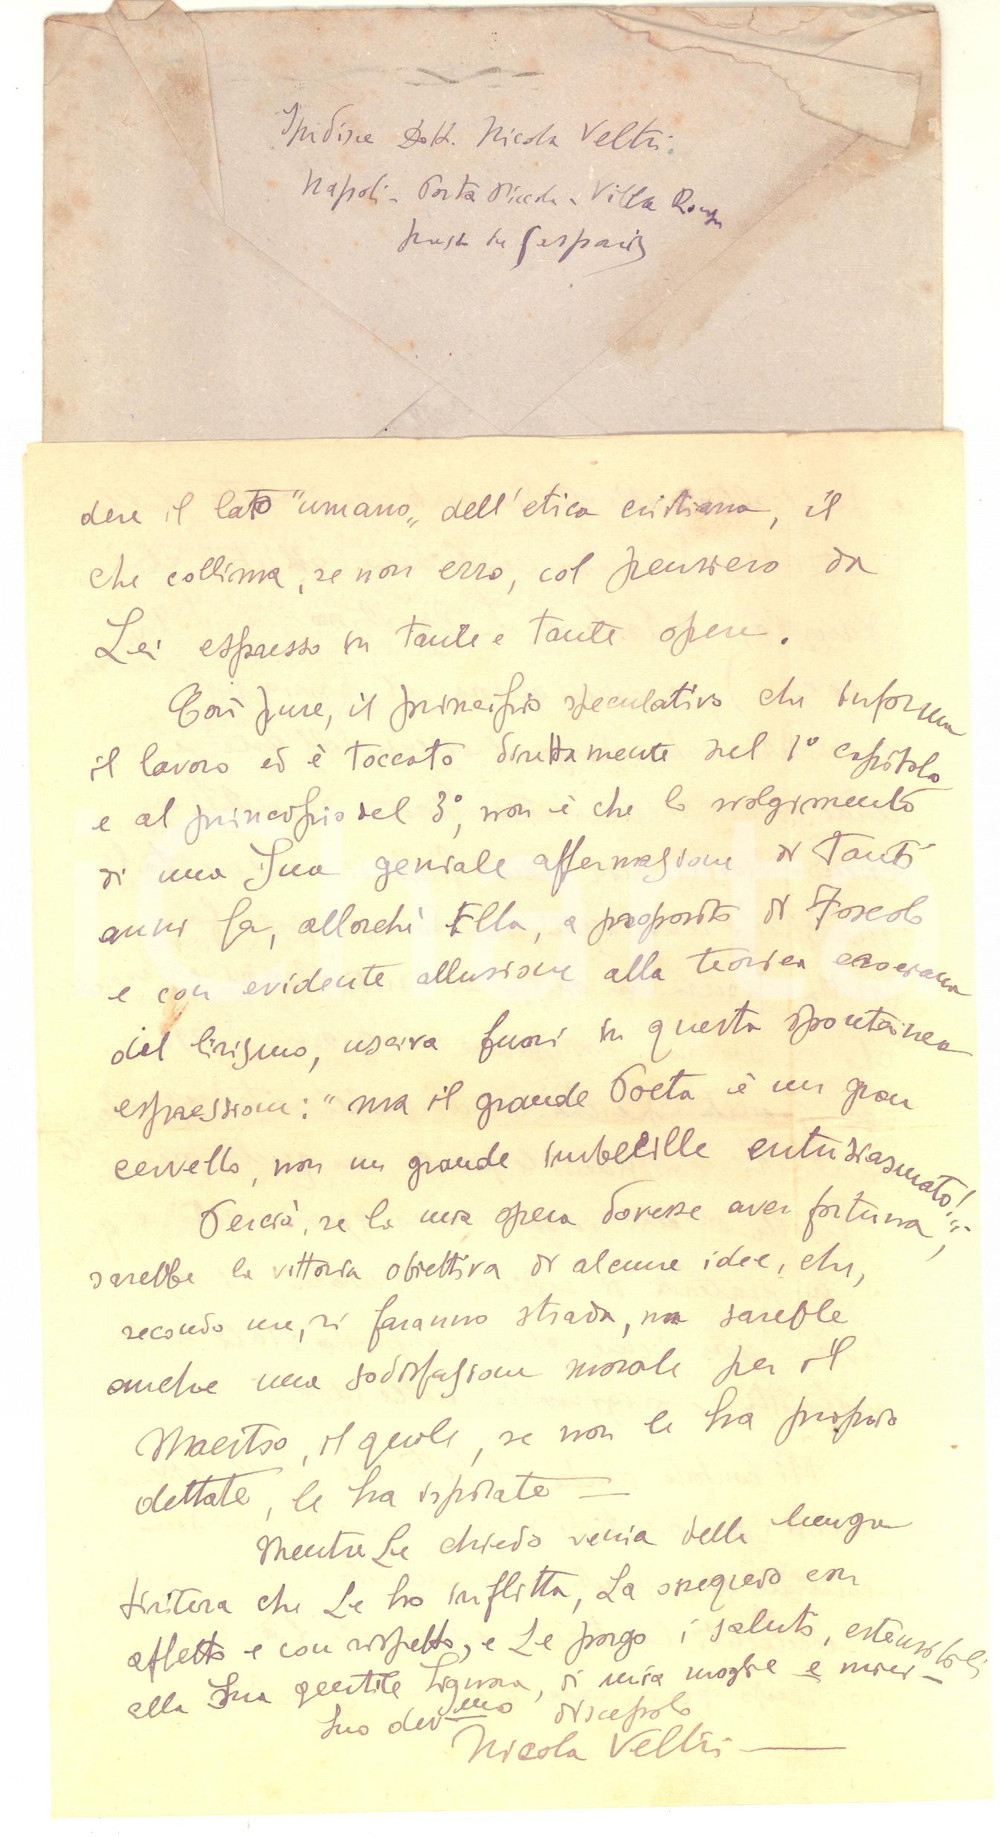 Spedisce Dott. Nicola Veltri.
Napoli - Porta Piccola - Villa
presso de Gesparis
dere il lato "umano„ dell'etica cristiana, il
che collima, se non erro, col pensiero da
Lei espresso in tante e tante opere.
Così pure, il principio speculativo che informa
il lavoro ed è toccato direttamente nel 1° capitolo
e al principio del 3°, non è che lo svolgimento
di una Sua geniale affermazione di tanti
anni fa, allorchè Ella, a proposito di Foscolo
e con evidente allusione alla teorica crociana
del lirismo, usciva fuori in questa spontanea
espressione: "ma il grande Poeta è un gran
cervello, non un grande imbecille entusiasmato!"
Perciò, se la mia opera dovesse aver fortuna,
sarebbe la vittoria obiettiva di alcune idee, che,
secondo me, si faranno strada, ma sarebbe
anche una sodisfazione morale per il
Maestro, il quale, se non le ha proprio
dettate, le ha ispirate —
Mentre Le chiedo venia della lunga
tiritera che Le ho inflitta, La ossequio con
affetto e con rispetto, e Le porgo i saluti, estensibili
alla Sua gentile Signora, di mia moglie e miei —
Suo dev.mo discepolo
Nicola Veltri —